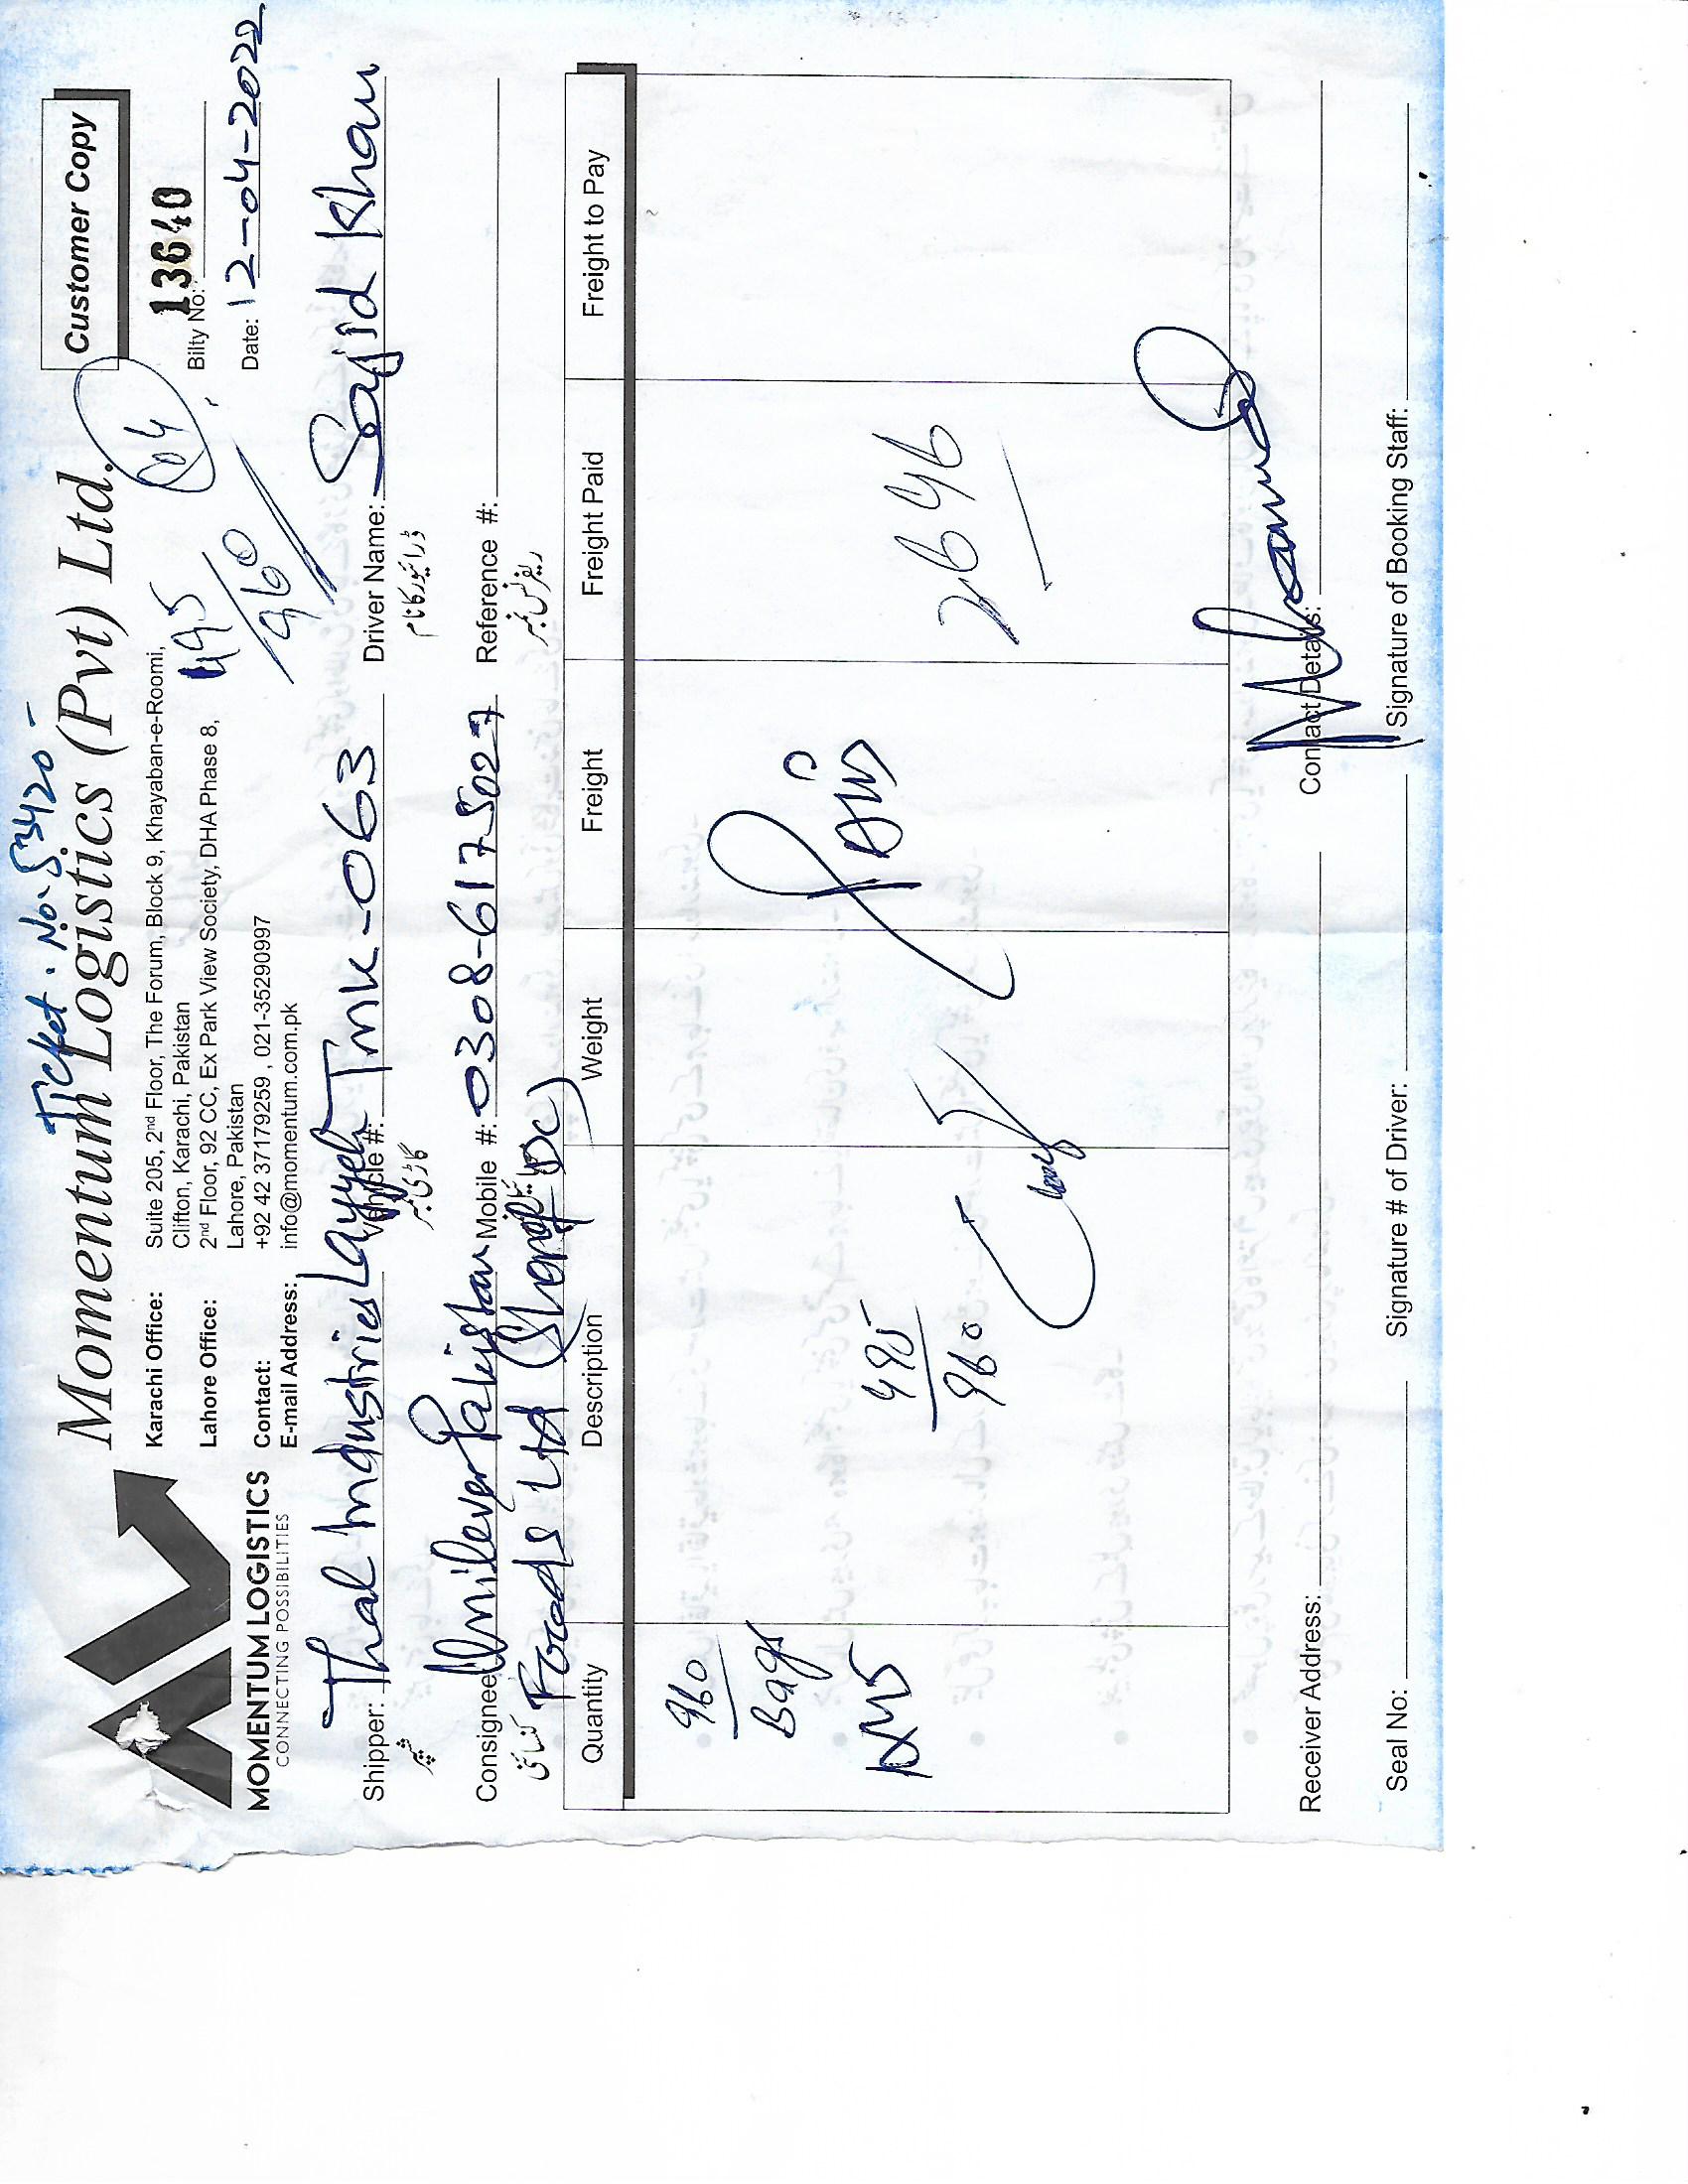 Ticket. No. 53420-
Momentum Logistics (Pvt) Ltd.
Customer Copy
MOMENTUM LOGISTICS
CONNECTING POSSIBILITIES
Karachi Office: Suite 205, 2nd Floor, The Forum, Block 9, Khayaban-e-Roomi,
Clifton, Karachi, Pakistan
Lahore Office: 2nd Floor, 92 CC, Ex Park View Society, DHA Phase 8,
Lahore, Pakistan
Contact: +92 42 37179259 , 021-35290997
E-mail Address: info@momentum.com.pk
495
960
04
Bilty No: 13640
Date: 12-04-2022
Shipper: Thal Industries Layyah Vehicle #: TMK-063 Driver Name: Sajid Khan
شپر گاڑی نمبر ڈرائیور کا نام
Consignee Unilever Pakistan Mobile #: 0308-6175027 Reference #:
کنسائنی ریفرنس نمبر
Foods Ltd DC)
Quantity Description Weight Freight Freight Paid Freight to Pay
960
Bags
495
960
2696
Receiver Address: Contact Details:
Seal No: Signature # of Driver: Signature of Booking Staff: